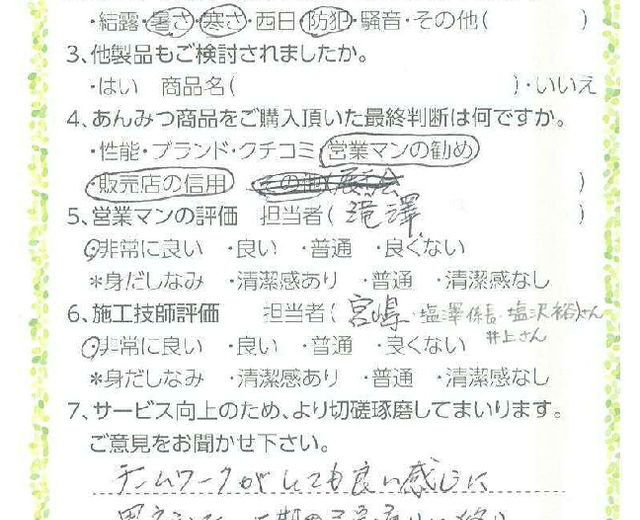 ・結露・暑さ・寒さ・西日・防犯・騒音・その他( )
3、他製品もご検討されましたか。
・はい 商品名( )・いいえ
4、あんみつ商品をご購入頂いた最終判断は何ですか。
・性能・ブランド・クチコミ・営業マンの勧め
・販売店の信用 ・その他( )
5、営業マンの評価 担当者( 滝澤 )
・非常に良い ・良い ・普通 ・良くない
*身だしなみ ・清潔感あり ・普通 ・清潔感なし
6、施工技師評価 担当者( 宮嶋・塩澤係長・塩沢裕)さん
井上さん
・非常に良い ・良い ・普通 ・良くない
*身だしなみ ・清潔感あり ・普通 ・清潔感なし
7、サービス向上のため、より切磋琢磨してまいります。
ご意見をお聞かせ下さい。
チームワークがとても良い感じに